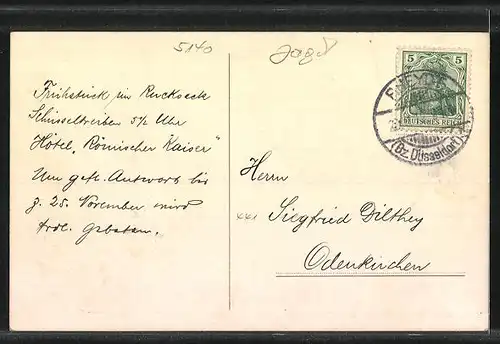 5140
Jagd
Frühstück im Rucksack
Schüsseltreiben 5½ Uhr
Hôtel „Römischer Kaiser“
Um gefl. Antwort bis
z. 25. November wird
frdl. gebeten.
5 5
DEUTSCHES REICH
RHEYDT
(Bz. Düsseldorf)
Herrn
Siegfried Dilthey
Odenkirchen